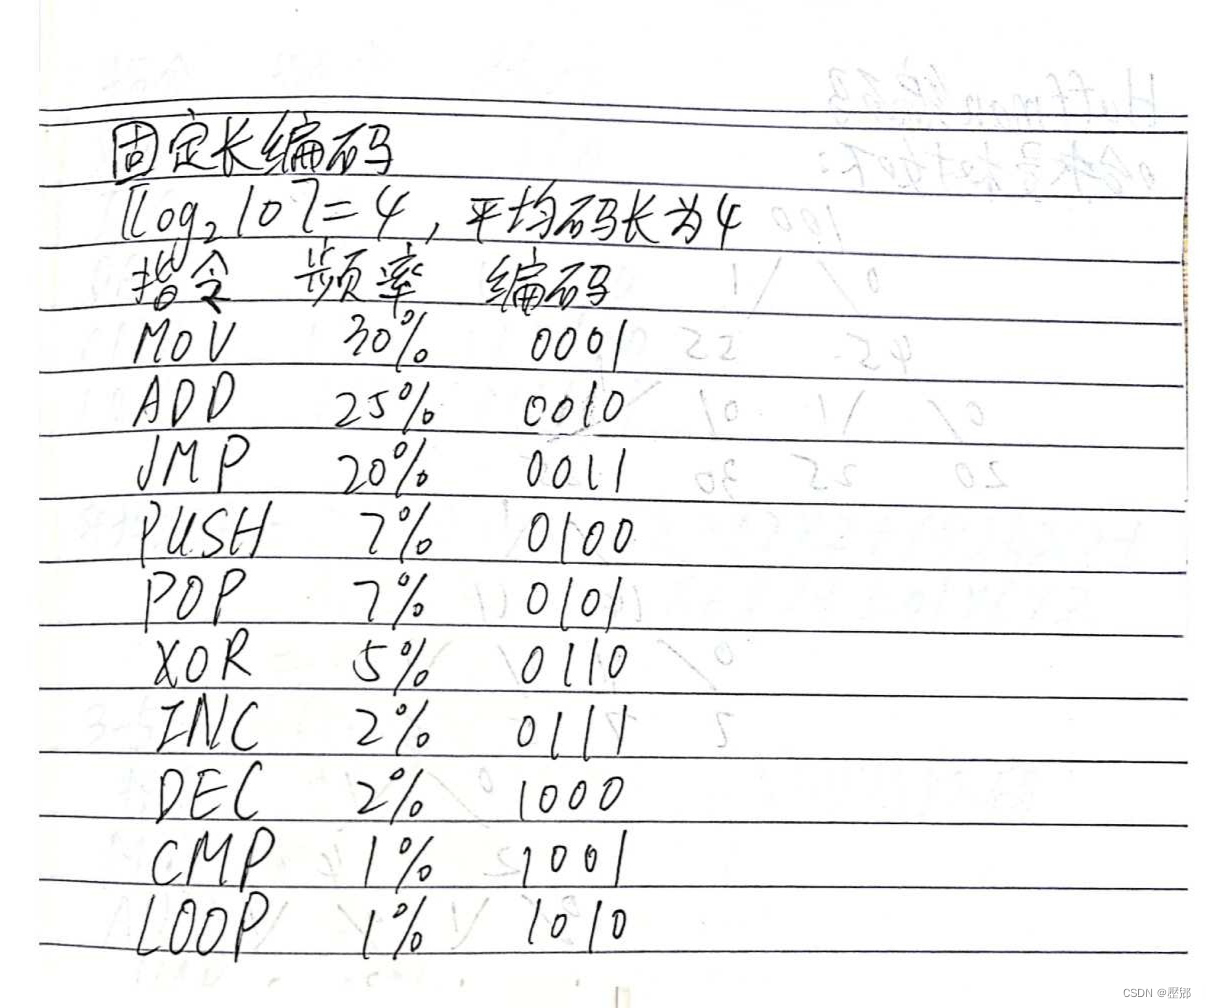 固定长编码
⌈log₂10⌉=4,平均码长为4
指令 频率 编码
MOV 30% 0001
ADD 25% 0010
JMP 20% 0011
PUSH 7% 0100
POP 7% 0101
XOR 5% 0110
INC 2% 0111
DEC 2% 1000
CMP 1% 1001
LOOP 1% 1010
CSDN